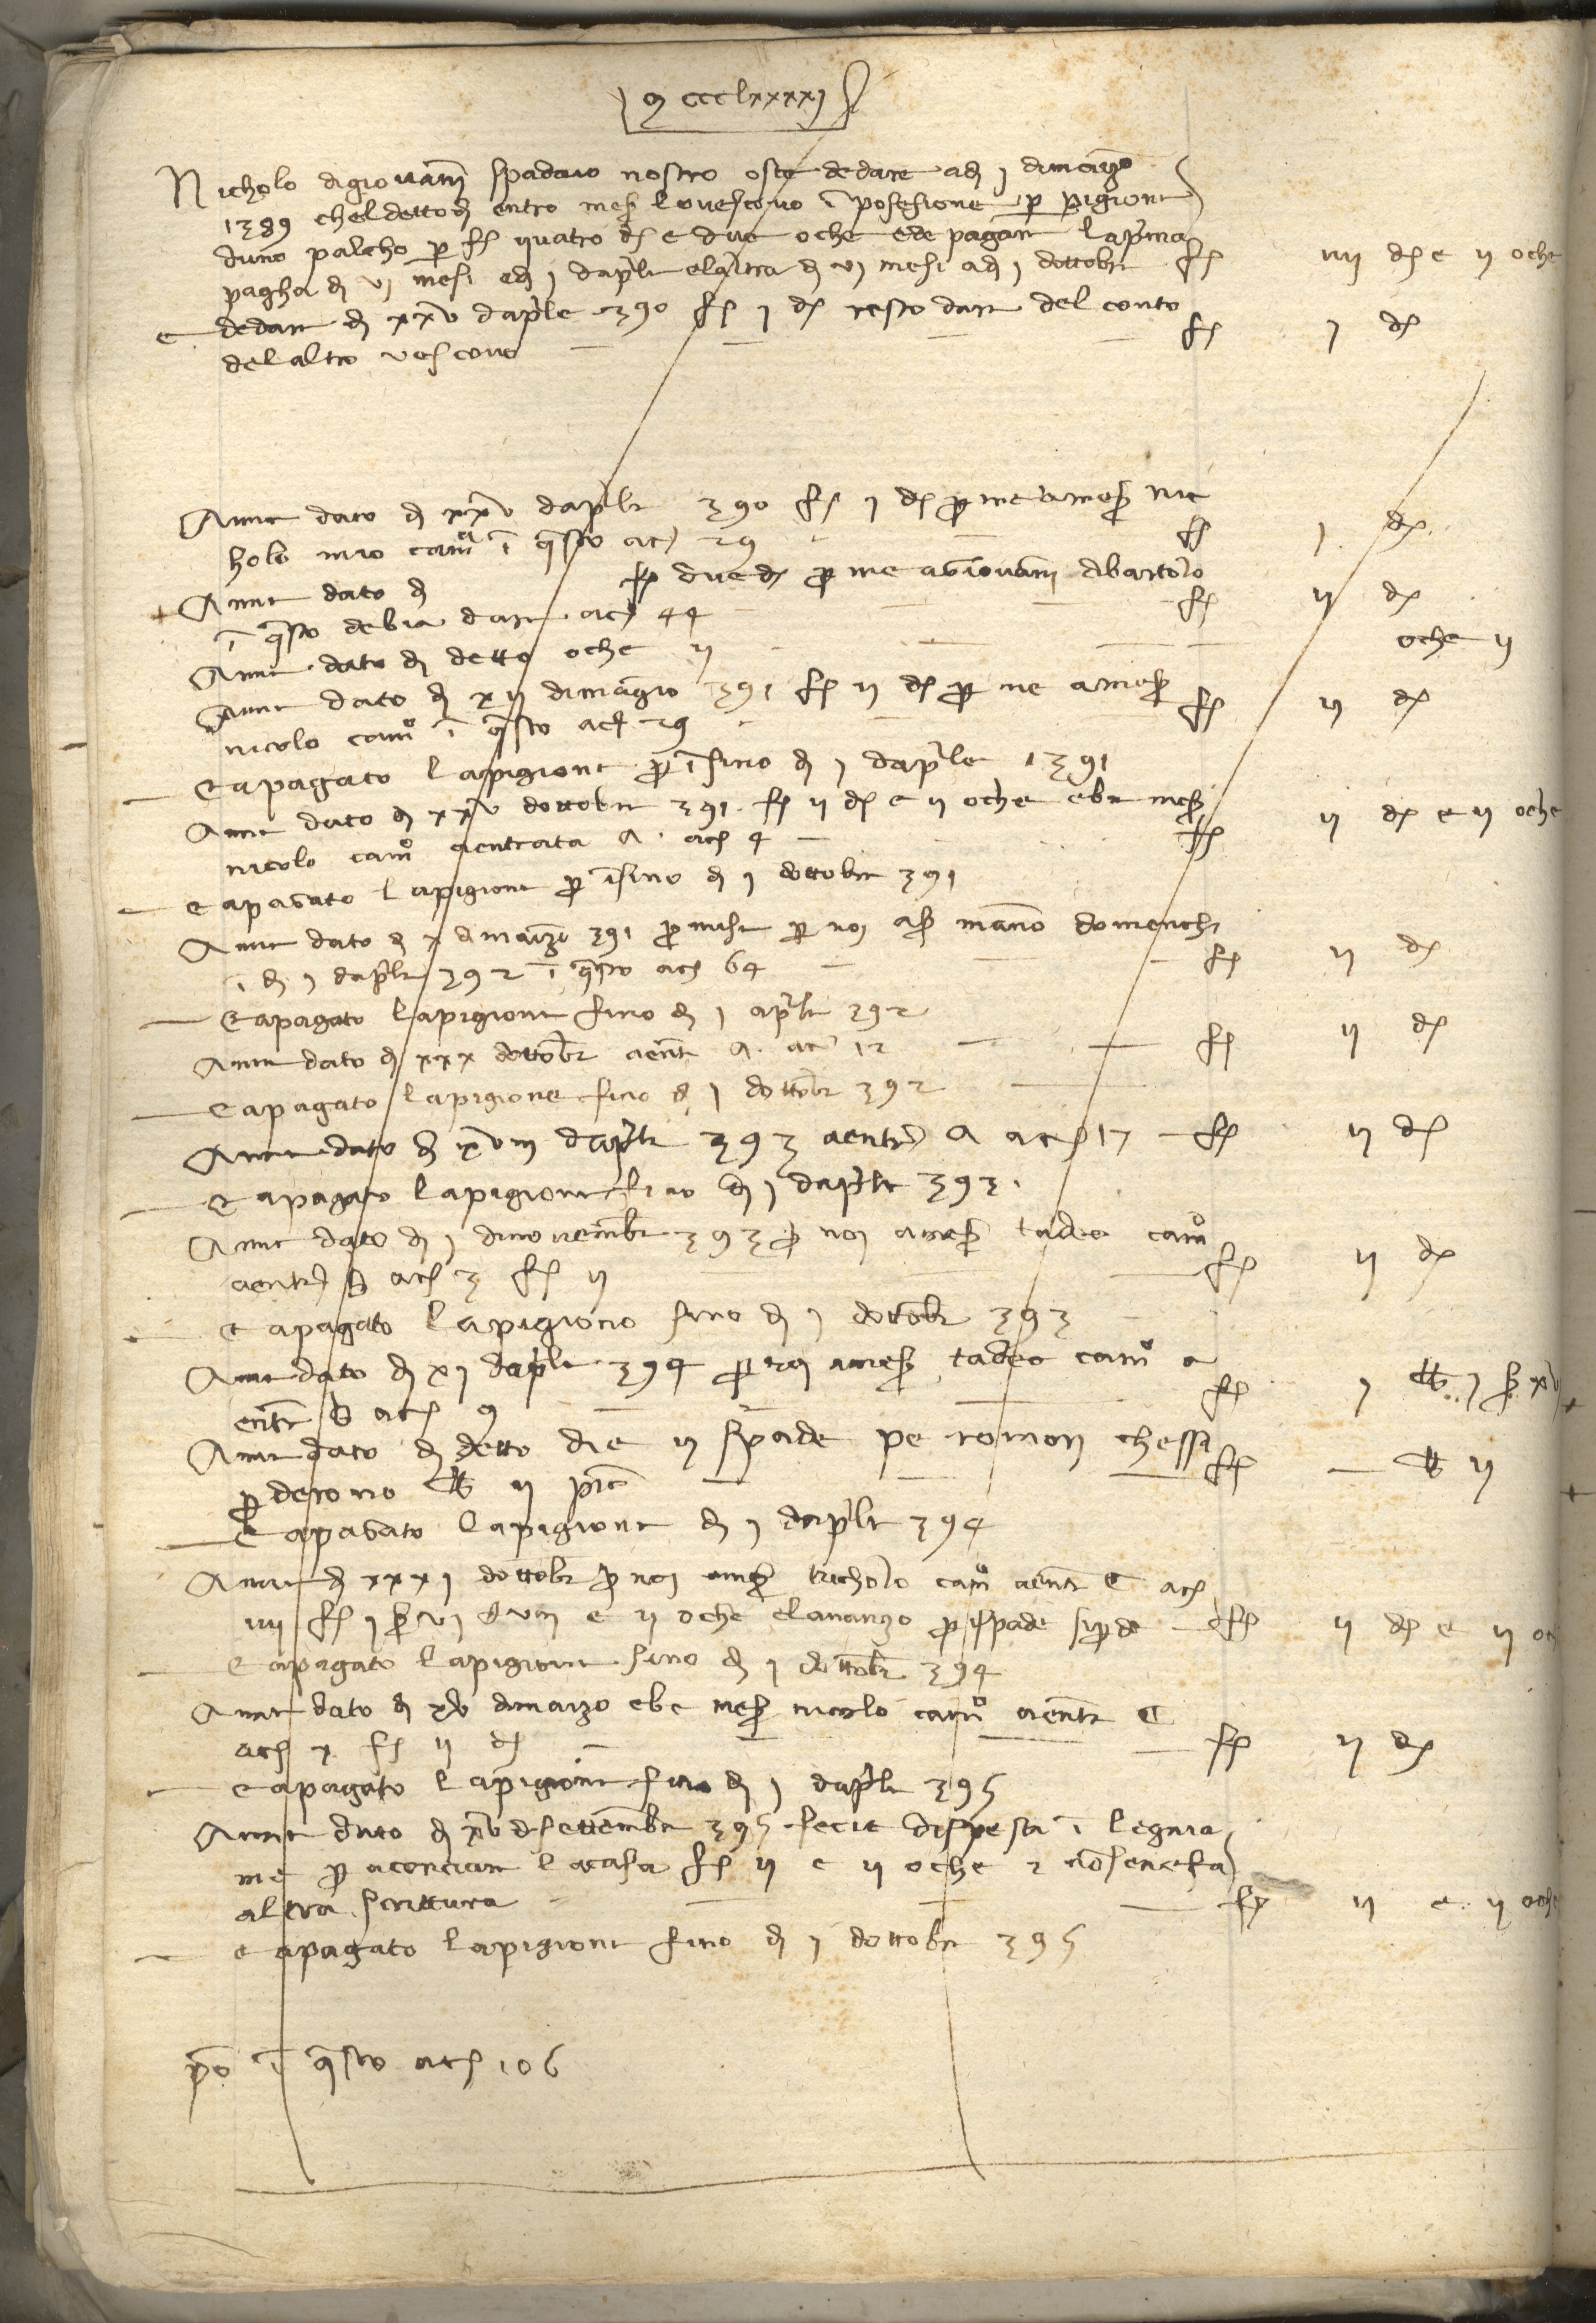 M cccLxxxxj
Nicholo digiovani spadaio nostro oste dedare adj j dimarzo
1389 cheldettodj entro meser lovescovo i posesione per pigione
duno palcho per fl quatro d e due oche ede pagare laprima
pagha di vj mesi edj j daprile elaltra dj vj mesi adj j dottobre fl iiij d e ij oche
e dedare dj xxv daprile 390 fl j d resto dare del conto
delaltro vescovo fl j d
Anne dato dj xxv daprile 390 fl j d per me ameser nic
holo mio camo i questo ac 29 fl j d
Anne dato dj fl due d per me agiovani dibartolo
i questo debia dare ac 44 fl ij d
Anne dato dj detto oche ij oche ij
Anne dato dj xij dimagio 391 fl ij d per me ameser
nicolo camo i questo ac 29 fl ij d
e apagato lapigione per i sino dj j daprile 1391
Anne dato dj xxv dottobre 391 fl ij d e ij oche ebe meser
nicolo camo aentrata A ac 4 fl ij d e ij oche
e apagato lapigione per isino dj j dottobre 391
Anne dato dj x dimarzo 391 per noi a mano domenichi
i dj j daprile 392 i questo ac 64 fl ij d
e apagato lapigione sino dj j aprile 392
Anne dato dj xxx dottobre aentr A ac 12 fl ij d
e apagato lapigione sino dj j dottobre 392
Anne dato dj xviij daprile 393 aentr A ac 17 fl ij d
e apagato lapigione sino dj j daprile 393
Anne dato dj j dinovembre 393 per noi ameser tadeo camo
aentr B ac 3 fl ij fl ij d
e apagato lapigione sino dj j dottobre 393
Anne dato dj xj daprile 394 per noi ameser tadeo camo a
entr B ac 9 fl j lb j s xv
Anne dato dj detto die ij spade pe romori chessi
perderono lb ij fl lb ij
e apagato lapigione dj j daprile 394
Anne dj xxxj dottobre per noi ameser nicholo camo aentr C ac
iiij fl j s vj d viij e ij oche elavanzo per ispade fl ij d e ij oc
e apagato lapigione sino dj j dottobre 394
Anne dato dj xv dimarzo ebe meser nicolo camo aentr C
ac x fl ij d fl ij d
e apagato lapigione sino dj j daprile 395
Anne dato dj xv di settembre 395 fecie dispesa i legnia
me per aconciare lacasa fl ij e ij oche e nonsenefa
altra scrittura fl ij e ij oche
e apagato lapigione sino dj j dottobre 395
po i questo ac 106